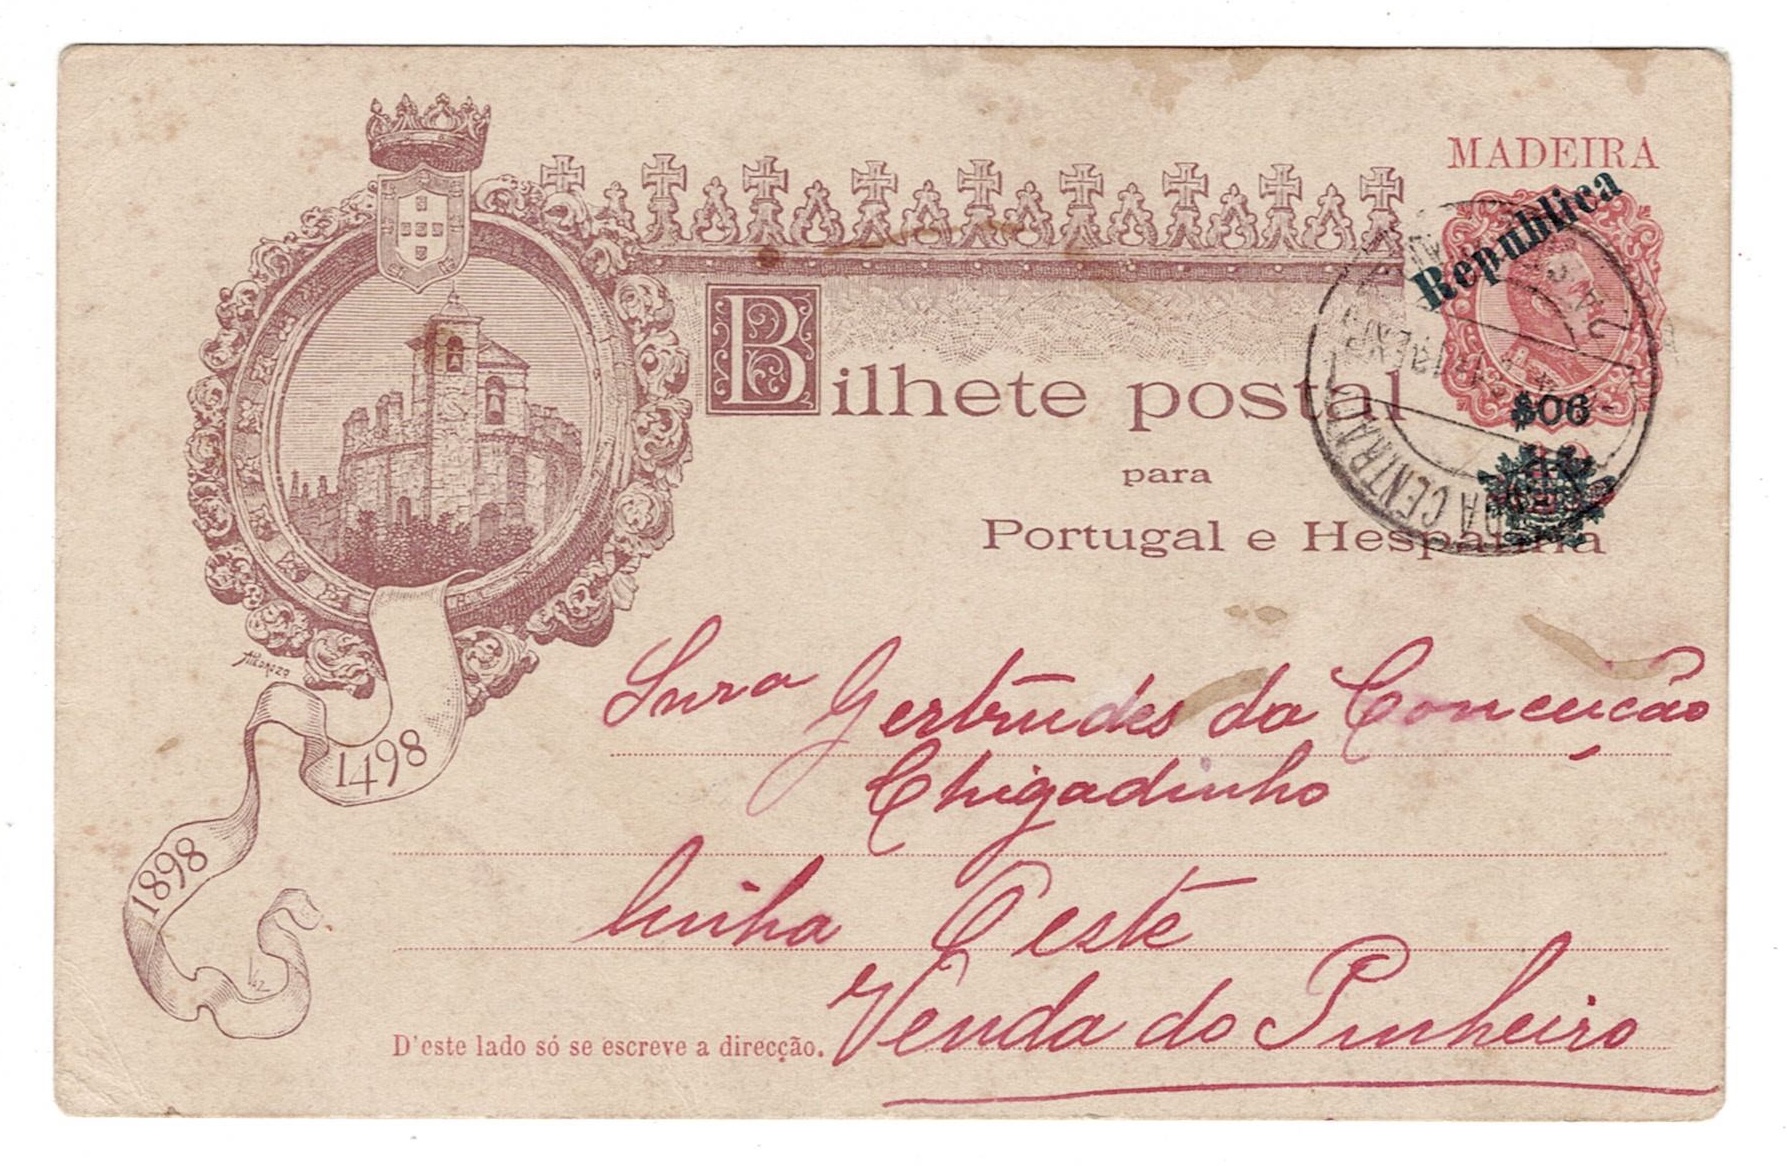 MADEIRA
Republica
Bilhete postal
$06
para
Portugal e Hespanha
CENTRAL
Snra Gertrudes da Conceição
1498
Chigadinho
1898
linha Oeste
Venda do Pinheiro
D'este lado só se escreve a direcção.